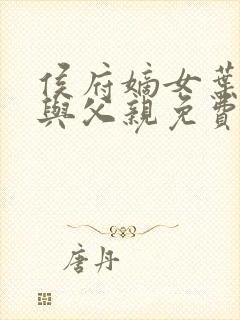 侯府嫡女葉
與父親免費
唐丹